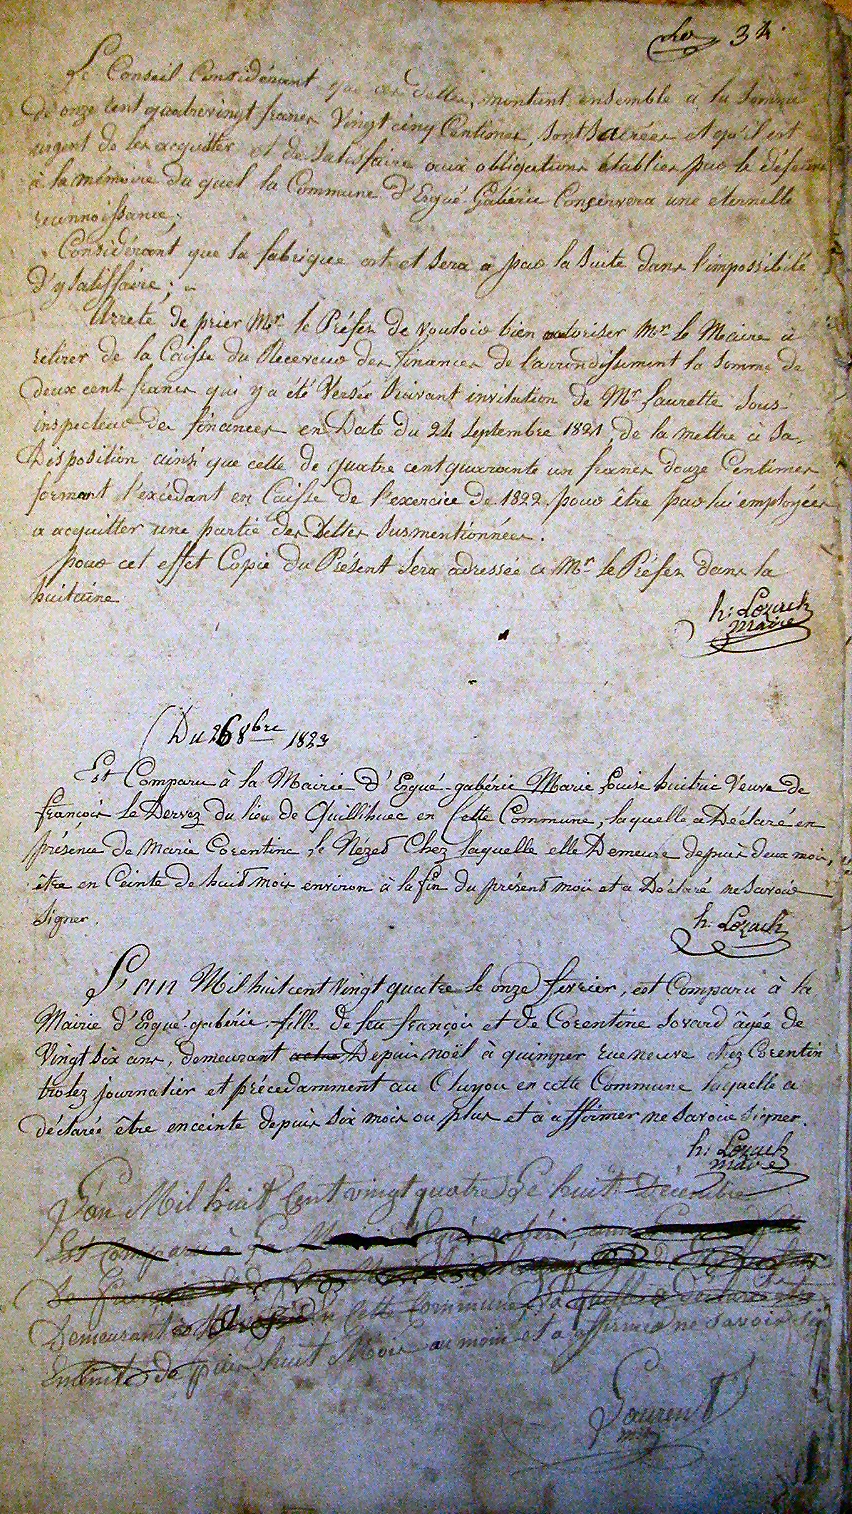 Lo 34.
Le Conseil Considérant que ces dettes, montant ensemble à la Somme
de onze cent quatrevingt francs Vingt cinq Centimes, sont Sacrées et qu'il est
urgent de les acquitter et de satisfaire aux obligations établies par le défunt
à la mémoire du quel la Commune d'Ergué-Gabéric Conservera une éternelle
reconnoissance;
Considerant que la fabrique est et sera à par la Suite dans l'impossibilité
D'y satisfaire;
Arrete de prier Mr le Préfet de vouloir bien autoriser Mr le Maire à
retirer de la Caisse du Receveur des finances de l'arrondissement la somme de
deux cent francs qui y a été Versée Suivant invitation de Mr Laurette Sous-
inspecteur des finances en Date du 24 Septembre 1821, de la mettre à Sa
Disposition ainsi que celle de quatre cent quarante un francs douze Centimes
formant l'excédant en Caisse de l'exercice de 1822 pour être par lui employées
a acquitter une partie des Dettes Susmentionnées.
pour cet effet Copie du Présent Sera adressée a Mr le Préfet dans la
huitaine
h: Lozach
maire
Du 26 8bre 1823
Est Comparu à la Mairie d'Ergué-gabéric Marie Louise huitric Veuve de
françois Le Dervez du lieu de Quillihuec en Cette Commune, laquelle a Déclaré en
présence de Marie Corentine Le Nézet Chez laquelle elle Demeure depuis deux mois,
être en Ceinte de huit mois environ à la fin du présent mois et a Déclaré ne Savoir
Signer.
h: Lozach
L'an Mil huit cent Vingt quatre le onze fevrier, est Comparu à la
Mairie d'Ergué-gabéric fille de feu françois et de Corentine Sovard âgée de
Vingt Six ans, demeurant Depuis noël à quimper rue neuve chez Corentin
trolez journalier et précedamment au Cluyou en cette Commune laquelle a
déclarée être enceinte depuis Six mois ou plus et à affirmer ne Savoir Signer.
h: Lozach
maire
L'an Mil huit Cent vingt quatre Le huit Décembre
Est Comparu à La
Demeurant en Cette Commune, la quelle a Déclaré
Enceinte de puis huit Mois au moins et a affirmé ne Savoir
Laurent